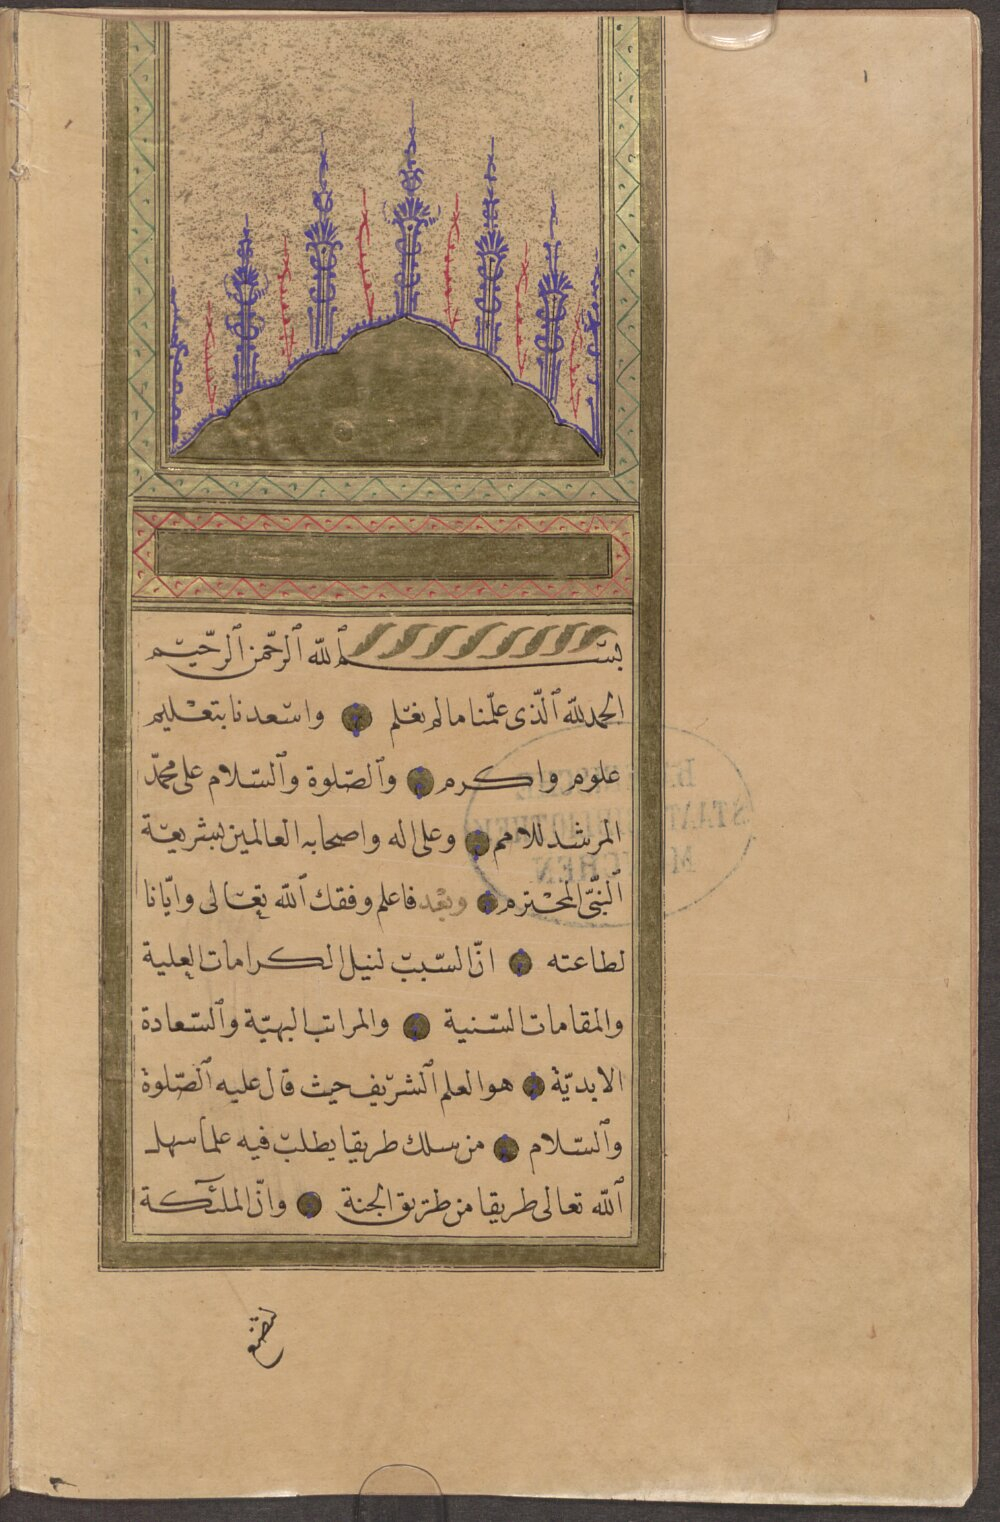 ١
بسم الله الرحمن الرحيم
الحمد لله الّذى علّمنا ما لم نعلم واسعدنا بتعليم
علوم واكرم والصّلوة والسّلام على محمّد
المرشد للامم وعلى اله واصحابه العالمين بشريعة
النّبىّ المحترم وبعد فاعلم وفقك الله تعالى وايّانا
لطاعته انّ السّبب لنيل الكرامات العلية
والمقامات السّنية والمراتب البهيّة والسّعادة
الابديّة هو العلم الشريف حيث قال عليه الصّلوة
والسّلام من سلك طريقا يطلب فيه علما سهل
الله تعالى طريقا من طريق الجنة وانّ الملئكة
لتضع
STAATSBIBLIOTHEK
MÜNCHEN